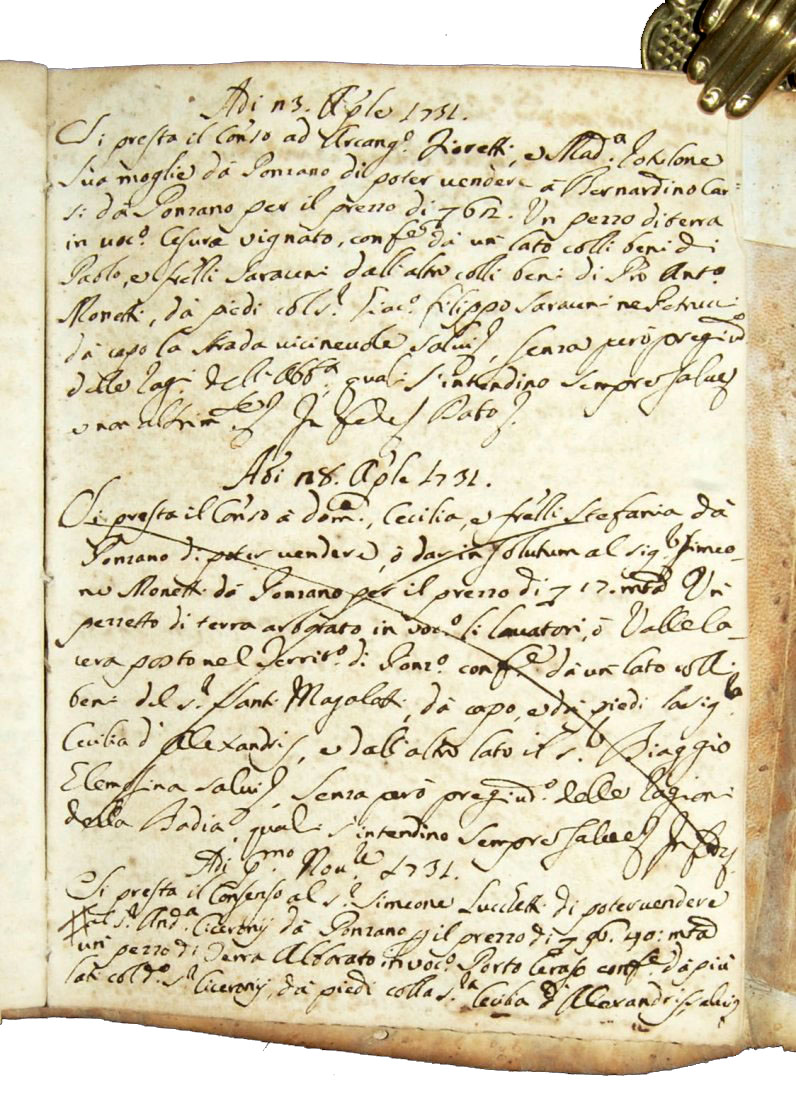 Adi 13. Aple 1731.
Si presta il Conso ad Arcang.o Fioretti, e Mad.a
sua moglie da Ponzano di poter vendere à Bernardino Car-
si da Ponzano per il prezzo di 12. Un pezzo di terra
in voc.o Cesura vignato, conf.te da un lato colli beni di
Paolo, e frelli Saraceni dall'altro colli beni di Ant.o
Monetti, da piedi col S.r Giac.o Filippo Saraceni ne
da capo la strada vicinevole salvis, senza però pregiud
delle Rag.i dell'Abb.a quali s'intendino sempre salve
e non altrim.te In fede
Adi 18. Aple 1731.
Si presta il Conso à Dom., Cecilia, e frelli Stefania da
Ponzano di poter vendere, ò dar in solutum al sig.r Simeo-
ne Monetti da Ponzano per il prezzo di 17. mta Un
pezzetto di terra arborato in voc.o li lavatori, ò Valle la-
vera posto nel Territ.o di Ponz.o conf.te da un lato colli
beni del S.r Santi Magalotti, da capo, e da piedi la sig.ra
Cecilia d'Alexandris, e dall'altro lato il S.r Biaggio
Elemosina salvis, senza però pregiud.o delle ragioni
della Badia quali s'intendino sempre salve In fede
Adi p.mo Nov.e 1731.
Si presta il Consenso al S.r Simeone Lucchetti di poter vendere
al S.r And.a Ciceronij da Ponzano il prezzo di 96. 40: mta
un pezzo di Terra Alborato in voc.o Porto Ceraso conf.te da più
lati col d.o S.r Ciceronij, da piedi colla S.ra Cecilia d'Alexandris salvis